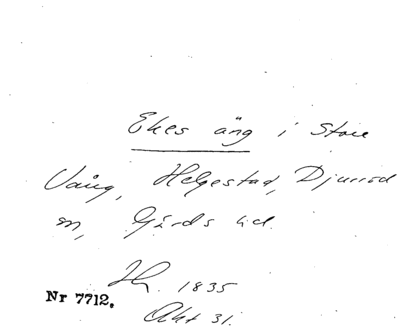 Ekes äng i Store
Vång, Helgestad, Djurröd
sn, Gärds hd.
H. 1835
Akt 31.
Nr 7712.